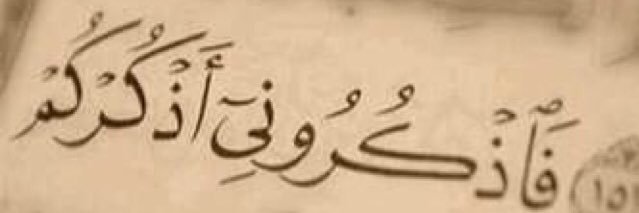 فَٱذۡكُرُونِيٓ أَذۡكُرۡكُمۡ